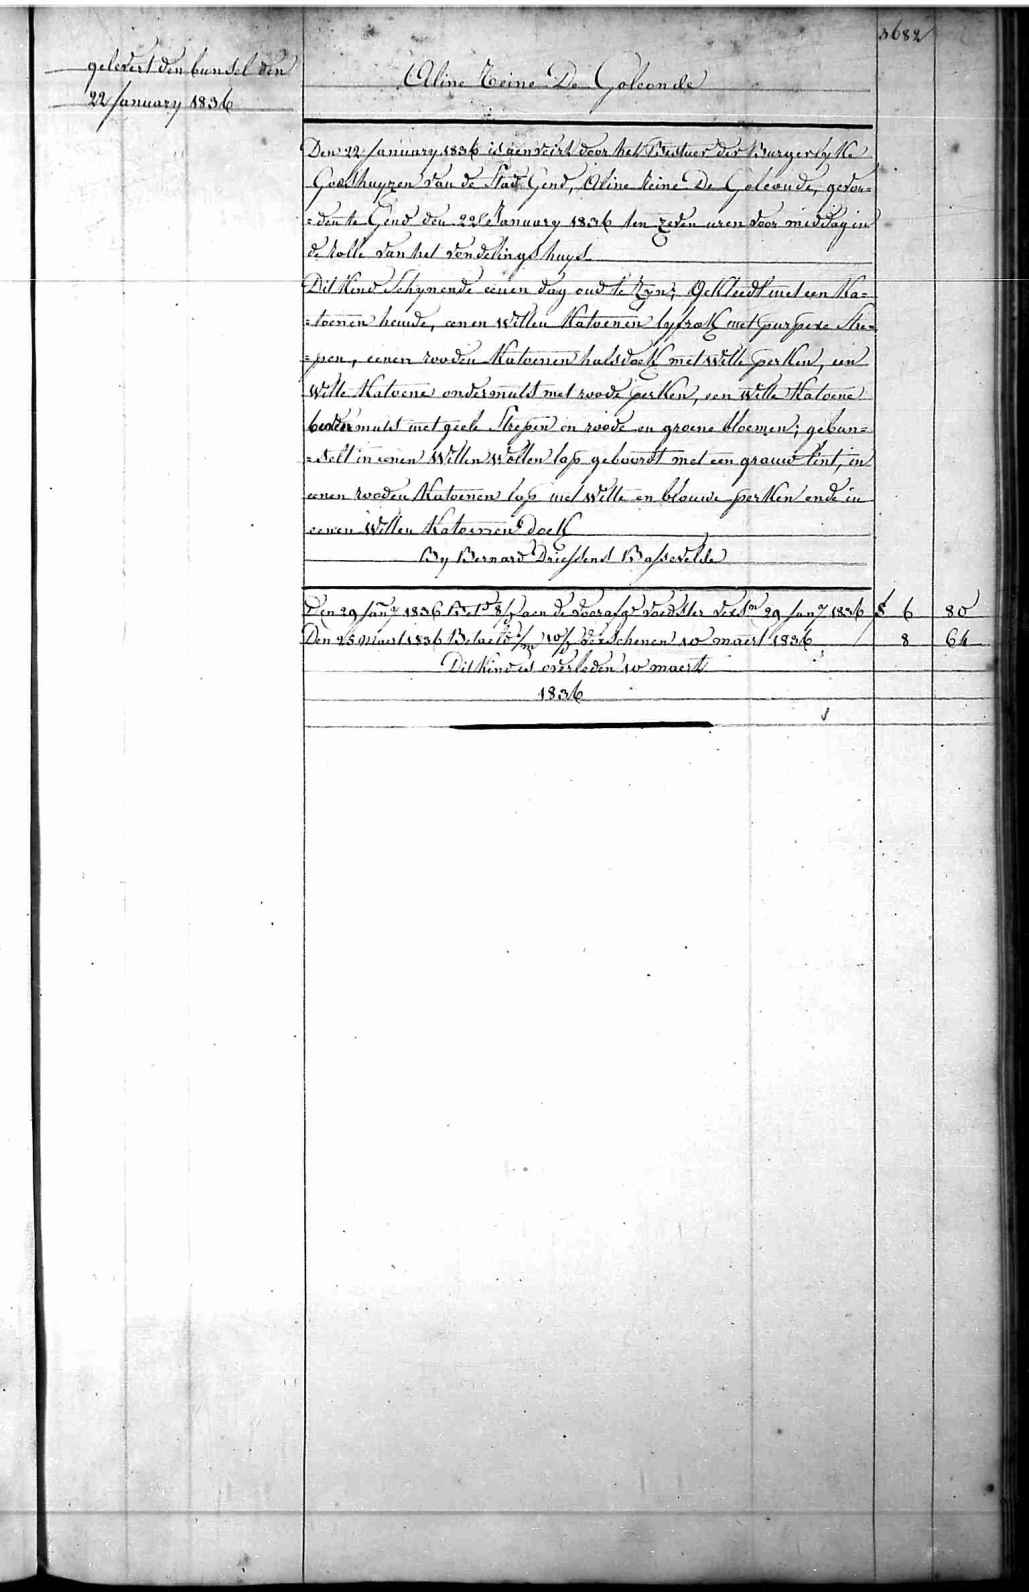 3682
gelevert den bunsel den
22 January 1836
Aline Reine De Golconde
Den 22 January 1836 is aenveirt door het Bestuer der Burgerlyke
Godshuyzen van de Stad Gend, Aline Reine De Golconde, gevon=
=den te Gend den 22e January 1836 ten zeven uren voor middag in
de rolle van het vondelings huys.
Dit Kind Schynende eenen dag oud te Zyn; Gekleedt met een Ka=
=toenen hemde, eenen Witten Katoenen lyfrok met purpere Stre=
=pen, eenen rooden Katoenen halsdoek met Witte perken, een
Witte Katoene ondermuts met roode perken, een Witte Katoene
bovenmuts met geele Strepen en roode en groene bloemen; gebun=
=selt in eenen Witten Wollen lap geboordt met een grauw lint, in
eenen rooden Katoenen lap met Witte en blauwe perken ende in
eenen Witten Katoenen Doek
By Bernard Driessens Bassevelde
Den 29 Jany 1836 Betd 8/d aen de voorafge voedster versn 29 Jany 1836 f 6 80
Den 25 maert 1836 Betaeld 1/m 10/d verschenen 10 maert 1836 8 64
Dit Kind is overleden 10 maert
1836